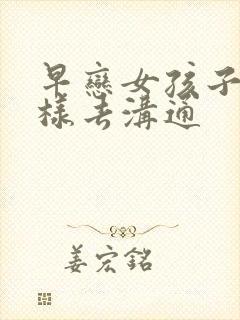 早戀女孩子
樣去溝通
姜宏銘